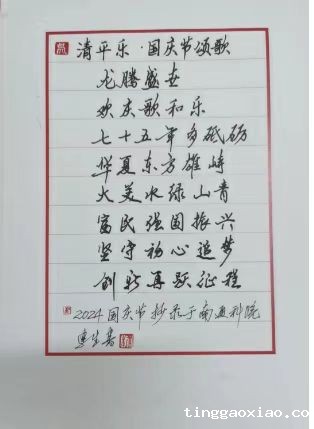 清平乐·国庆节颂歌
龙腾盛世
欢庆歌和乐
七十五年多砥砺
华夏东方雄峙
大美水绿山青
富民强国振兴
坚守初心追梦
创新再跃征程
2024国庆节抄录于南通科院
书
tinggaoxiao.com